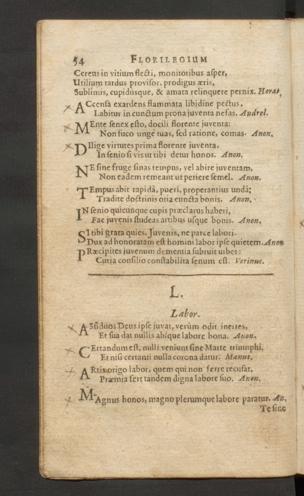 54 FLORILEGIUM
Cereus in vitium flecti, monitoribus asper,
Utilium tardus provisor, prodigus æris,
Sublimis, cupidusque, & amata relinquere pernix. Horat,
ACcensa exardens flammata libidine pectus,
Labitur in cunctum prona juventa nefas. Audrel.
MEnte senex esto, docili florente juventa:
Non fuco unge tuas, sed ratione, comas. Anon.
DIlige virtutes prima florente juventa.
In senio si visur tibi detur honos. Anon.
NE sine fruge sinas tempus, vel abire juventam,
Non eadem remeant ut periere semel. Anon.
TEmpus abit rapidâ, pueri, properantius undâ;
Tradite doctrinis otia cuncta bonis. Anon.
IN senio quicunque cupis præclarus haberi,
Fac juvenis studeas artibus usque bonis. Anon.
SI tibi grata quies, Juvenis, ne parce labori.
Dux ad honoratam est homini labor ipse quietem. Anon
PRæcipites juvenum dementia subruit urbes:
Curia consilio constabilita senum est. Verinus.
L.
Labor.
ASsiduos Deus ipse juvat, verùm odit inertes,
Et sua dat nullis absque labore bona. Anon.
CErtandum est, nulli veniunt sine Marte triumphi,
Et nisi certanti nulla corona datur. Mantu.
ARtis origo labor, quem qui non ferre recusat,
Præmia fert tandem digna labore suo. Anon.
MAgnus honos, magno plerumque labore paratur. An.
Te sine